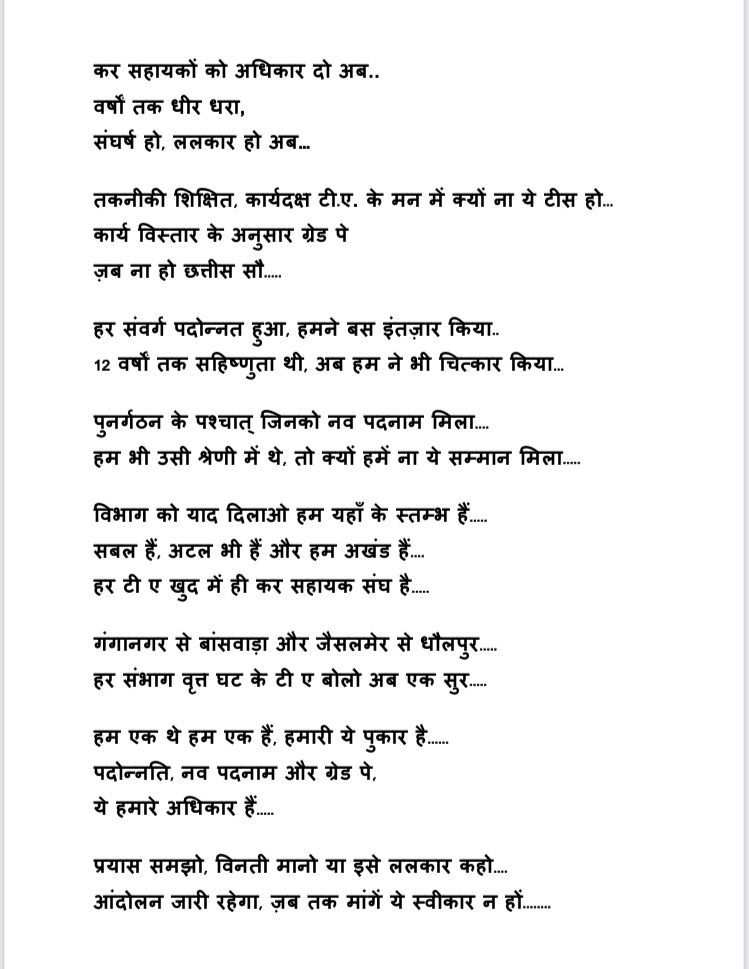 कर सहायकों को अधिकार दो अब..
वर्षों तक धीर धरा,
संघर्ष हो, ललकार हो अब...
तकनीकी शिक्षित, कार्यदक्ष टी.ए. के मन में क्यों ना ये टीस हो...
कार्य विस्तार के अनुसार ग्रेड पे
ज़ब ना हो छत्तीस सौ.....
हर संवर्ग पदोन्नत हुआ, हमने बस इंतज़ार किया..
12 वर्षों तक सहिष्णुता थी, अब हम ने भी चित्कार किया...
पुनर्गठन के पश्चात् जिनको नव पदनाम मिला....
हम भी उसी श्रेणी में थे, तो क्यों हमें ना ये सम्मान मिला.....
विभाग को याद दिलाओ हम यहाँ के स्तम्भ हैं.....
सबल हैं, अटल भी हैं और हम अखंड हैं....
हर टी ए खुद में ही कर सहायक संघ है.....
गंगानगर से बांसवाड़ा और जैसलमेर से धौलपुर.....
हर संभाग वृत्त घट के टी ए बोलो अब एक सुर.....
हम एक थे हम एक हैं, हमारी ये पुकार है......
पदोन्नति, नव पदनाम और ग्रेड पे,
ये हमारे अधिकार हैं.....
प्रयास समझो, विनती मानो या इसे ललकार कहो....
आंदोलन जारी रहेगा, ज़ब तक मांगें ये स्वीकार न हों........